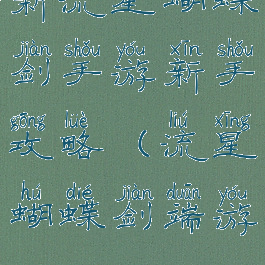 新流星蝴蝶
jiàn shǒu yóu xīn shǒu
剑手游新手
gōng lüè liú xīng
攻略(流星
hú dié jiàn duān yóu
蝴蝶剑端游